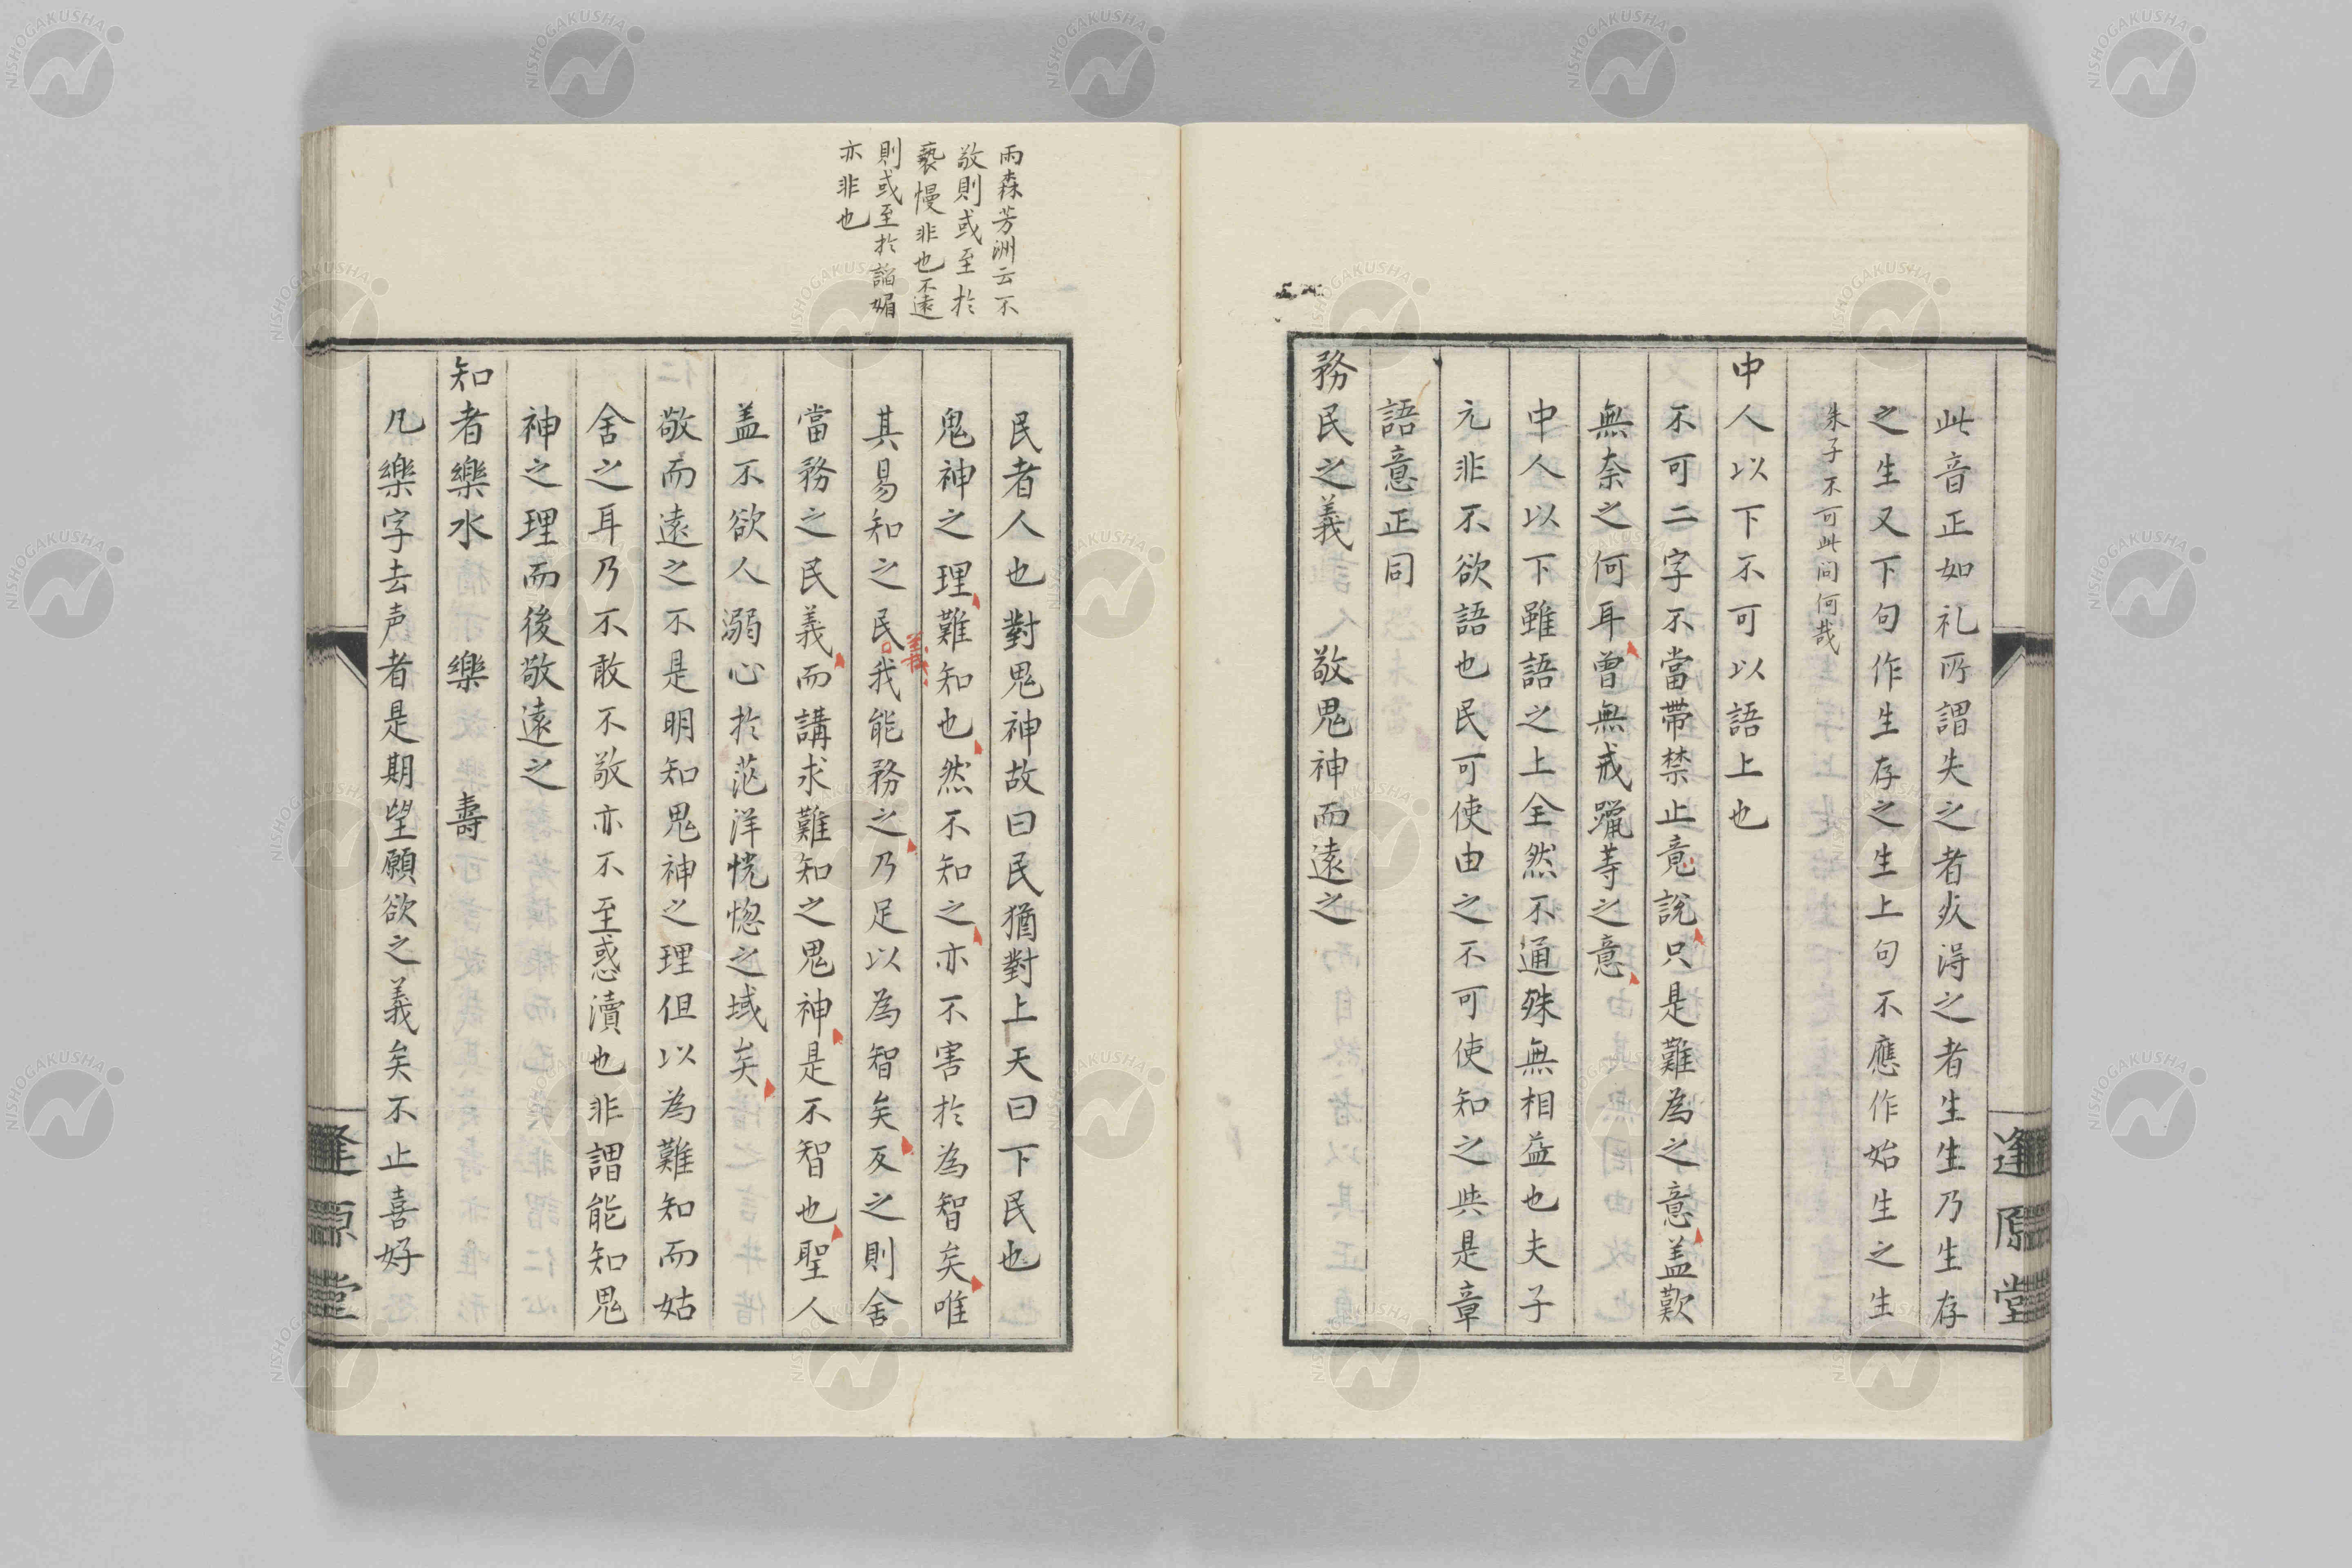 此音正如礼所謂失之者死得之者生生乃生存
之生又下句作生存之生上句不應作始生之生
朱子不可此問何哉
中人以下不可以語上也
不可二字不當帶禁止竟說只是難為之意盖歎
無奈之何耳曾無戒躐等之意
中人以下雖語之上全然不通殊無相益也夫子
元非不欲語也民可使由之不可使知之與是章
語意正同
務民之義 敬鬼神而遠之
逢原堂
雨森芳洲云不
敬則或至於
褻慢非也不遠
則或至於諂媚
亦非也
民者人也對鬼神故曰民猶對上天曰下民也
鬼神之理難知也然不知之亦不害於為智矣唯
其易知之民義我能務之乃足以為智矣反之則舍
當務之民義而講求難知之鬼神是不智也聖人
盖不欲人溺心於茫洋恍惚之域矣
敬而遠之不是明知鬼神之理但以為難知而姑
舍之耳乃不敢不敬亦不至惑瀆也非謂能知鬼
神之理而後敬遠之
知者樂水 樂 壽
凡樂字去声者是期望願欲之義矣不止喜好
逢原堂
NISHOGAKUSHA